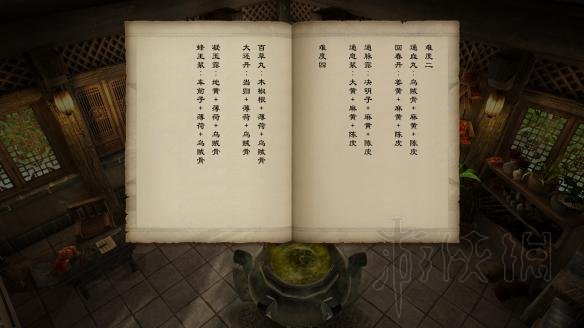 难度二
通血丸：乌贼骨+麻黄+陈皮
回春丹：荃黄+麻黄+陈皮
通脉露：决明子+麻黄+陈皮
通息浆：大黄+麻黄+陈皮
难度四
百草丸：木椒根+薄荷+乌贼骨
大还丹：当归+薄荷+乌贼骨
凝玉露：地黄+薄荷+乌贼骨
蜂王浆：车前子+薄荷+乌贼骨
游侠网